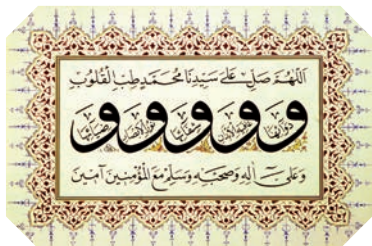 اَللّٰهُمَّ صَلِّ عَلَىٰ سَيِّدِنَا مُحَمَّدٍ طِبِّ الْقُلُوبِ
وَدَوَائِهَا وَعَافِيَةِ الْأَبْدَانِ وَشِفَائِهَا وَنُورِ الْأَبْصَارِ وَضِيَائِهَا
وَعَلَىٰ اٰلِهِ وَصَحْبِهِ وَسَلِّمْ مَعَ الْمُؤْمِنِينَ آمِينَ